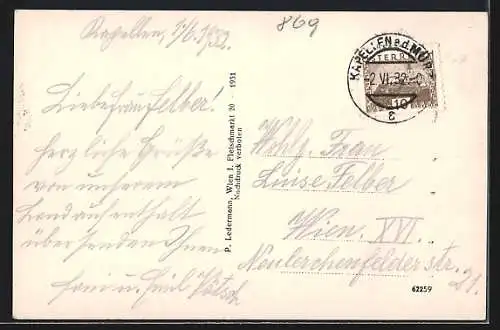 Kapellen, 1/6. 1932
869
Liebe Frau Felber!
Herzliche Grüße
von unserem
Landaufenthalt
übersenden Ihnen
u. Emil Pötsch
P. Ledermann, Wien I. Fleischmarkt 20 - 1931
Nachdruck verboten
KAPELLEN a.d. MÜRZ
-2.VI.32
ÖSTERR
10
Wohlg. Frau
Luise Felber
Wien XVI.
Neulerchenfelder str.
21.
62259